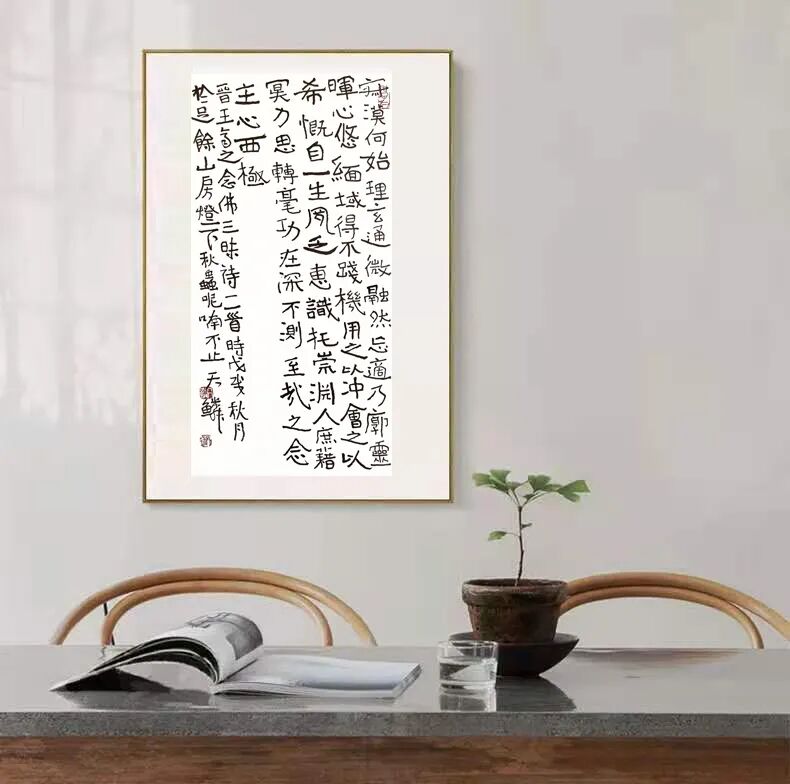 寂漠何始理玄通微融然忘適乃廓靈
暉心悠緬域得不踐機用之以冲會之以
希慨自一生夙乏惠識托崇淵人庶藉
冥力思轉毫功在深不測至哉之念
主心西極
晉王喬之念佛三昧詩二首時戊戌秋月
於是餘山房燈下秋蟲呢喃不止天鱗